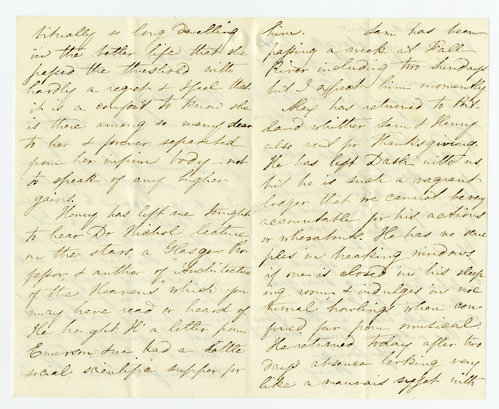 bitually so long dwelling
in the better life that she
passed the threshold with
hardly a regret & I feel that
it is a comfort to know she
is there among so many dear
to her & forever separated
from her infirm body - not
to speak of any higher
gains.
Henry has left me tonight
to hear Dr Nichol lecture
on the stars, a Glasgow Pro
fessor, & author of "Architecture
of the Heavens" which you
may have read or heard of
He brought H a letter from
Emerson & we had a little
social scientific supper for
him. Sam has been
passing a week at Fall
River including two Sundays
but I expect him momently
Alex has returned to
whither Sam & Henry
also went for Thanksgiving.
He has left Dash with us
but he is such a vagrant
lodger that we cannot be very
accountable for his actions
or whereabouts. He has no scru
ples in breaking windows
if one is closed in his sleep
ing room, & indulges in noc
turnal howlings when con
fined, far from musical.
He returned today after two
days absence looking very
like a mauvais sujet with